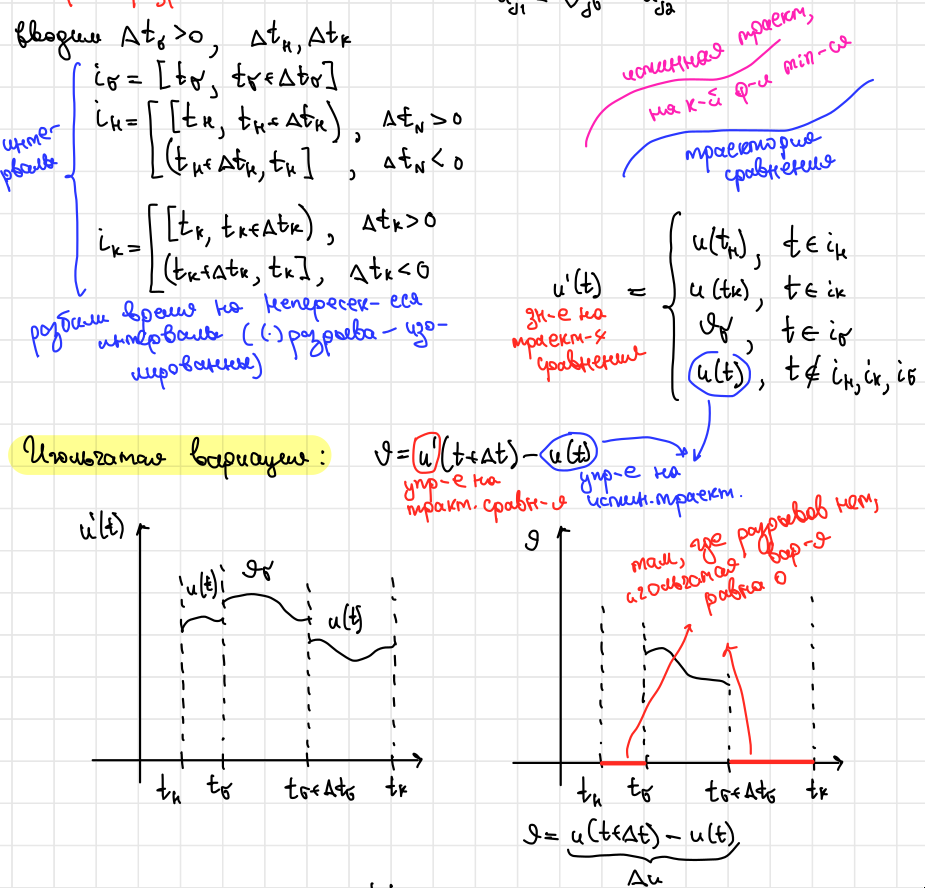 вводим Δt_σ>0, Δt_н, Δt_к
i_σ = [t_σ, t_σ+Δt_σ]
i_н = [[t_н, t_н+Δt_н), Δt_N>0
(t_н+Δt_н, t_н], Δt_N<0
инте-
рвалы
i_к = [[t_к, t_к+Δt_к), Δt_к>0
(t_к+Δt_к, t_к], Δt_к<0
разбили время на непересек-еся
интервалы ((·) разрыва - изо-
лированны)
истинная траект,
на к-й ф-л min-ся
траектория
сравнения
u'(t) = { u(t_н), t∈i_н
u(t_к), t∈i_к
ϑ_σ, t∈i_σ
u(t), t∉i_н, i_к, i_σ
зн-е на
траект-х
сравнения
Игольчатая вариация: ϑ = u'(t+Δt) - u(t)
упр-е на
тракт. сравн-я
упр-е на
истин. траект.
u'(t)
u(t) ϑ_σ u(t)
t_н t_σ t_σ+Δt_σ t_к
ϑ
там, где разрывов нет,
игольчатая вар-я
равна 0
t_н t_σ t_σ+Δt_σ t_к
ϑ = u(t+Δt) - u(t)
Δu